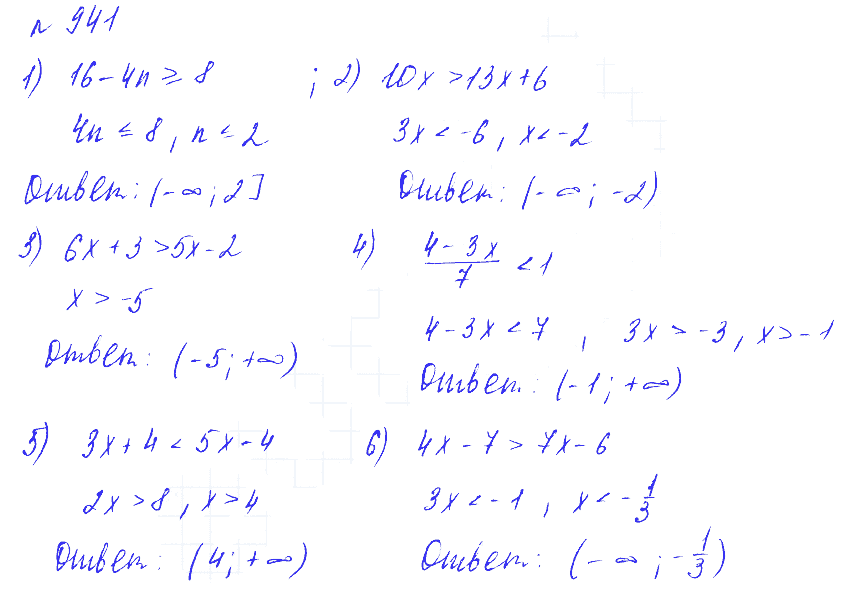 n 941
1) 16 - 4n ≥ 8 ; 2) 10x > 13x + 6
4n ≤ 8, n ≤ 2
3x < -6, x < -2
Ответ: (-∞; 2]
Ответ: (-∞; -2)
3) 6x + 3 > 5x - 2
x > -5
Ответ: (-5; +∞)
4) (4 - 3x)/7 < 1
4 - 3x < 7, 3x > -3, x > -1
Ответ: (-1; +∞)
5) 3x + 4 < 5x - 4
2x > 8, x > 4
Ответ: (4; +∞)
6) 4x - 7 > 7x - 6
3x < -1, x < -1/3
Ответ: (-∞; -1/3)